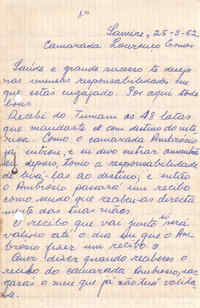 Samine, 25-3-62
Camarada Lourenço Gomes
Saúde e grande sucesso te desejo
nas imensas responsabilidades em
que estás engajado. Por aqui todos
bons.
Recebi do Tumane as 48 latas
que mandaste de com destino do inte
rior. Como o camarada Ambrósio
já entrou, e eu devo entrar amanhã
ou depois, tomo a responsabilidade
de levá-las ao destino, e então
o Ambrósio passará um recibo
como sendo que recebeu directa
mente das tuas mãos.
O recibo que vai junto só será
valioso até o dia em que o Am
brósio fizer um recibo.
Quer dizer quando receberes o
recibo do camarada Ambrósio, ras
garás o meu que já não terá valida
de.